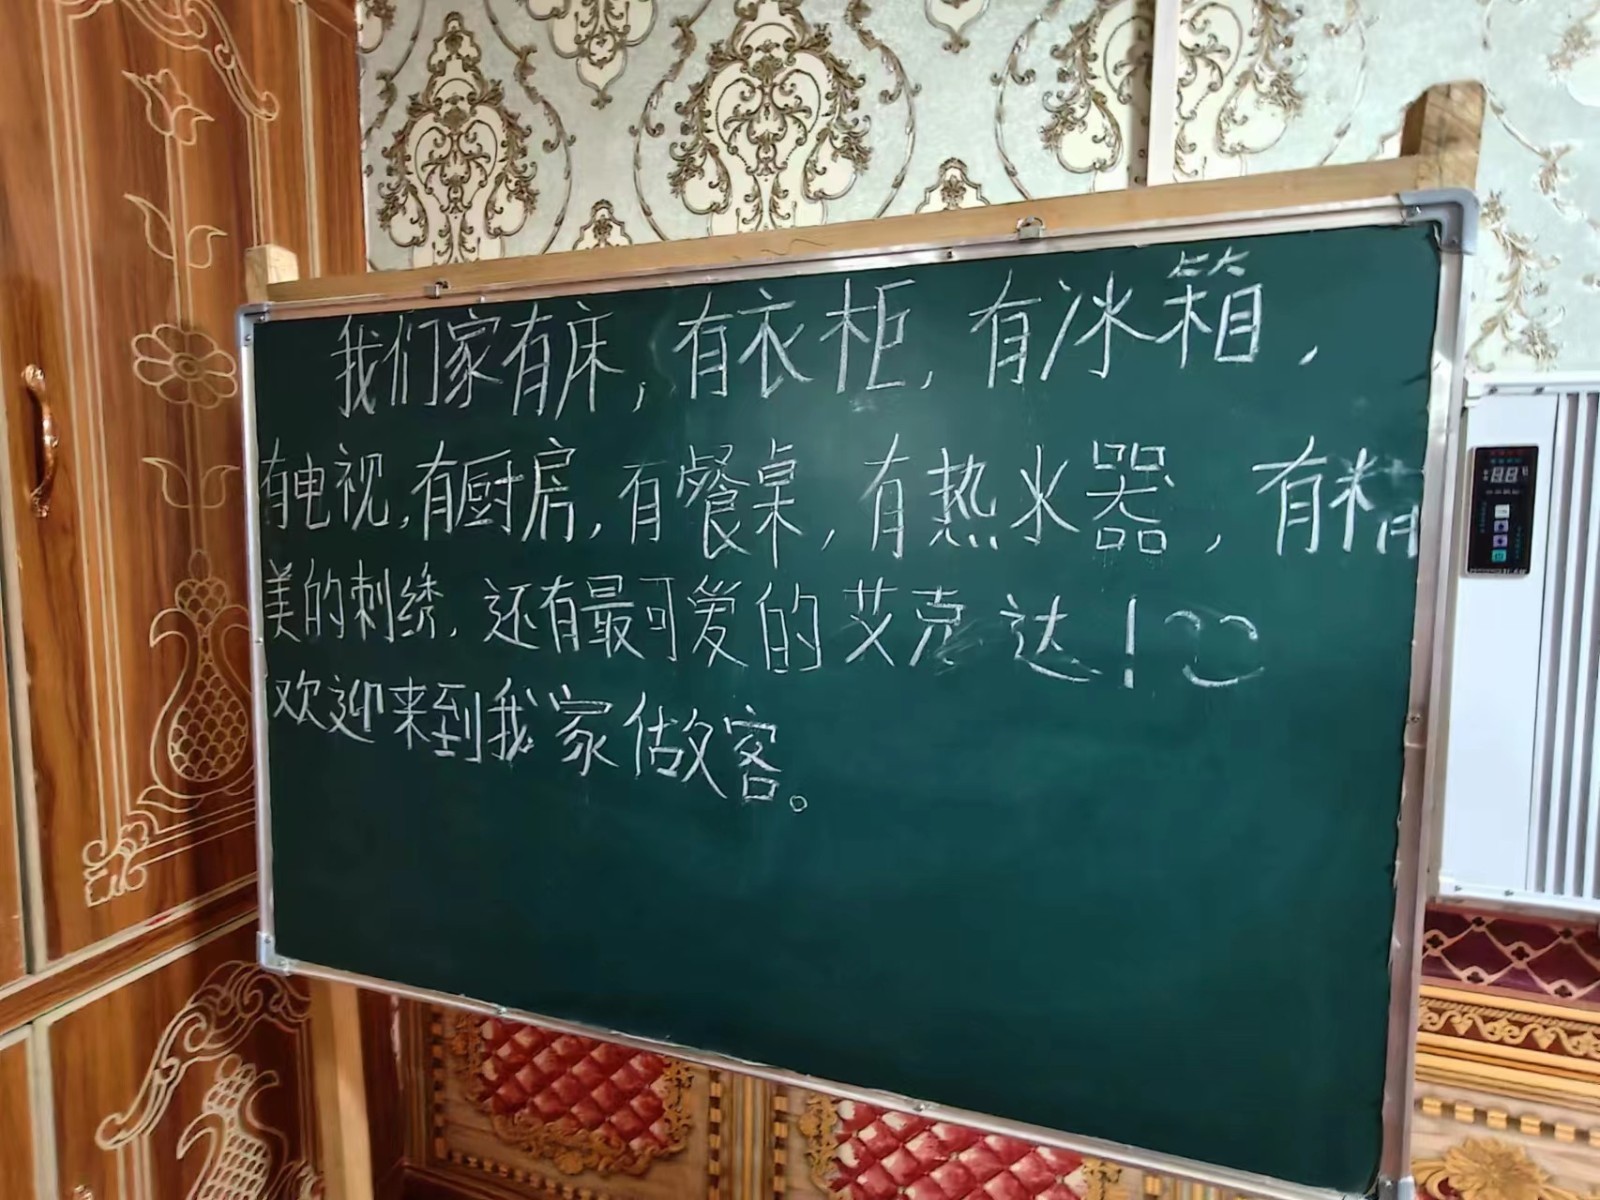 我们家有床，有衣柜，有冰箱，
有电视，有厨房，有餐桌，有热水器，有精
美的刺绣，还有最可爱的艾克达！
欢迎来到我家做客。